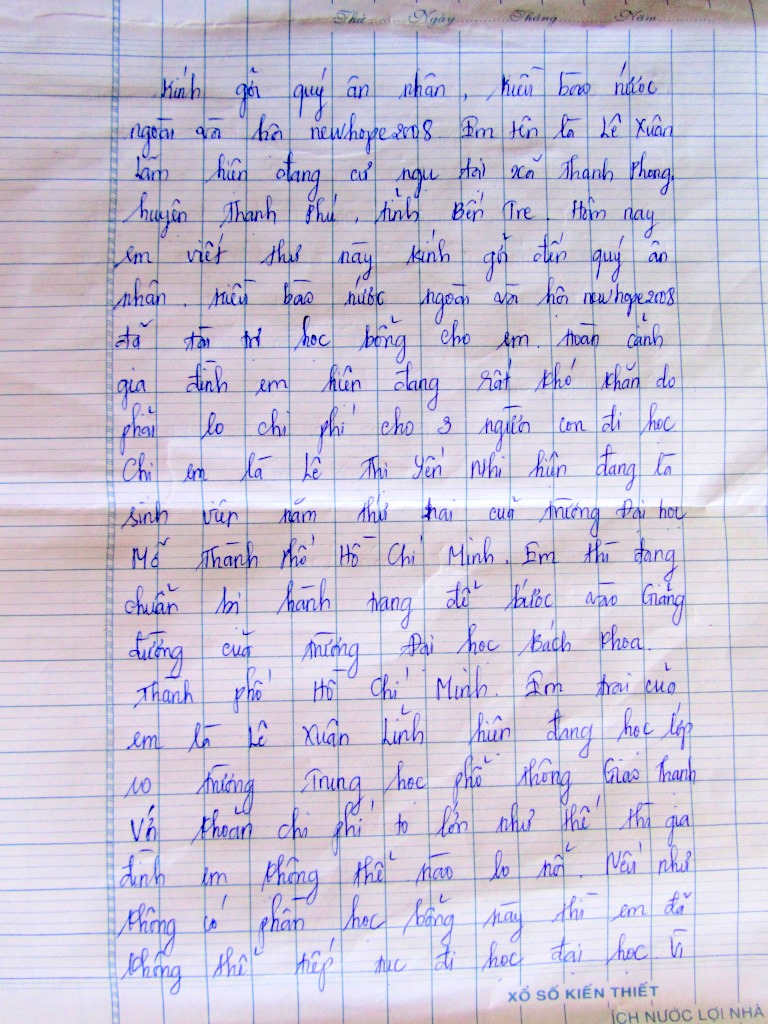 Thứ Ngày Tháng Năm
Kính gởi quý ân nhân, kiều bào nước
ngoài và hội newhope2008. Em tên là Lê Xuân
Lãm hiện đang cư ngụ tại xã Thạnh Phong,
huyện Thạnh Phú, tỉnh Bến Tre. Hôm nay
em viết thư này kính gởi đến quý ân
nhân, kiều bào nước ngoài và hội newhope2008
đã tài trợ học bổng cho em. Hoàn cảnh
gia đình em hiện đang rất khó khăn do
phải lo chi phí cho 3 người con đi học
Chị em là Lê Thị Yến Nhi hiện đang là
sinh viên năm thứ hai của trường Đại học
Mở Thành phố Hồ Chí Minh. Em thì đang
chuẩn bị hành trang để bước vào Giảng
đường của trường Đại học Bách Khoa.
Thành phố Hồ Chí Minh. Em trai của
em là Lê Xuân Lĩnh hiện đang học lớp
10 trường Trung học phổ thông Giao Thạnh
Với khoản chi phí to lớn như thế thì gia
đình em không thể nào lo nổi. Nếu như
không có phần học bổng này thì em đã
không thể tiếp tục đi học đại học. Vì
XỔ SỐ KIẾN THIẾT
ÍCH NƯỚC LỢI NHÀ